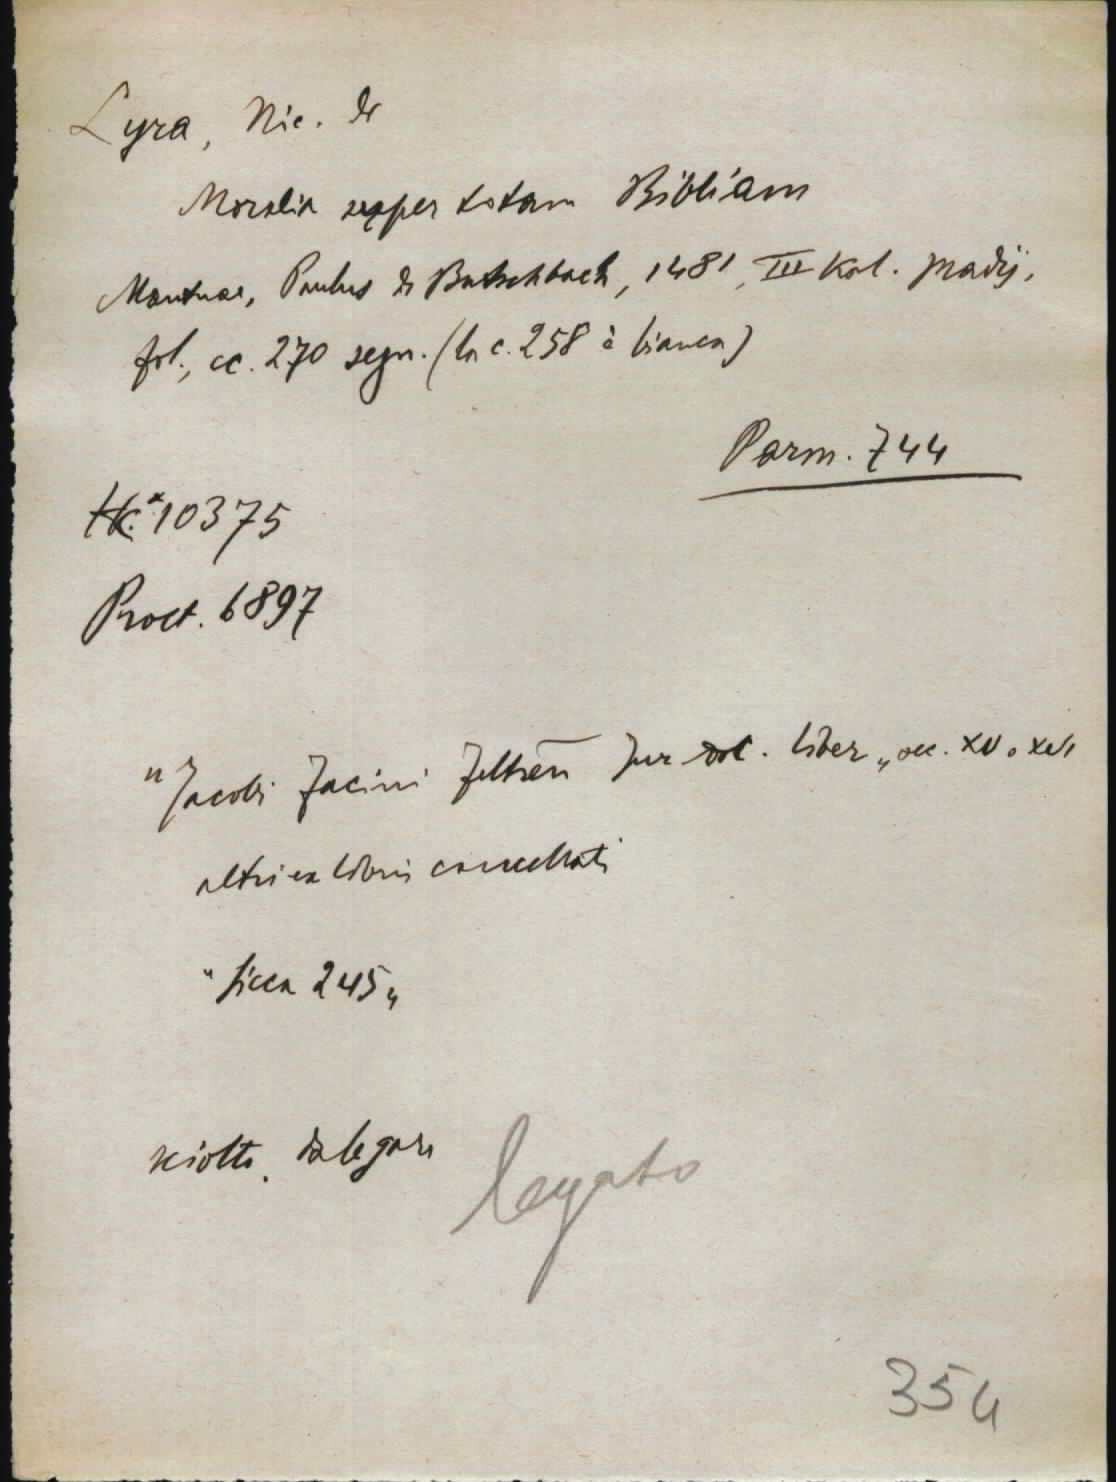 Lyra, Nic. de
Moralia super totam Bibliam
Mantuae, Paulus de Butschbach, 1481, III Kal. Madij,
fol., cc. 270 segn. (la c. 258 è bianca)
Parm. 744
HC.* 10375
Proct. 6897
"Jacobi Jacini feltren Jur. liber„ sec. XV o XVI
altri ex libris cancellati
"Sicca 245„
sciolto, da legare
legato
354